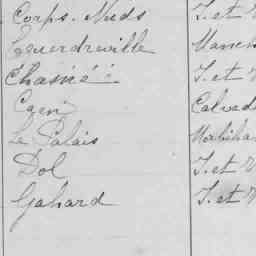 Corps-Nuds I. et
Equerdreville Manch
Chasné I. et V
Caen Calvad
Le Palais Morbiha
Dol I. et V
Gahard I. et V